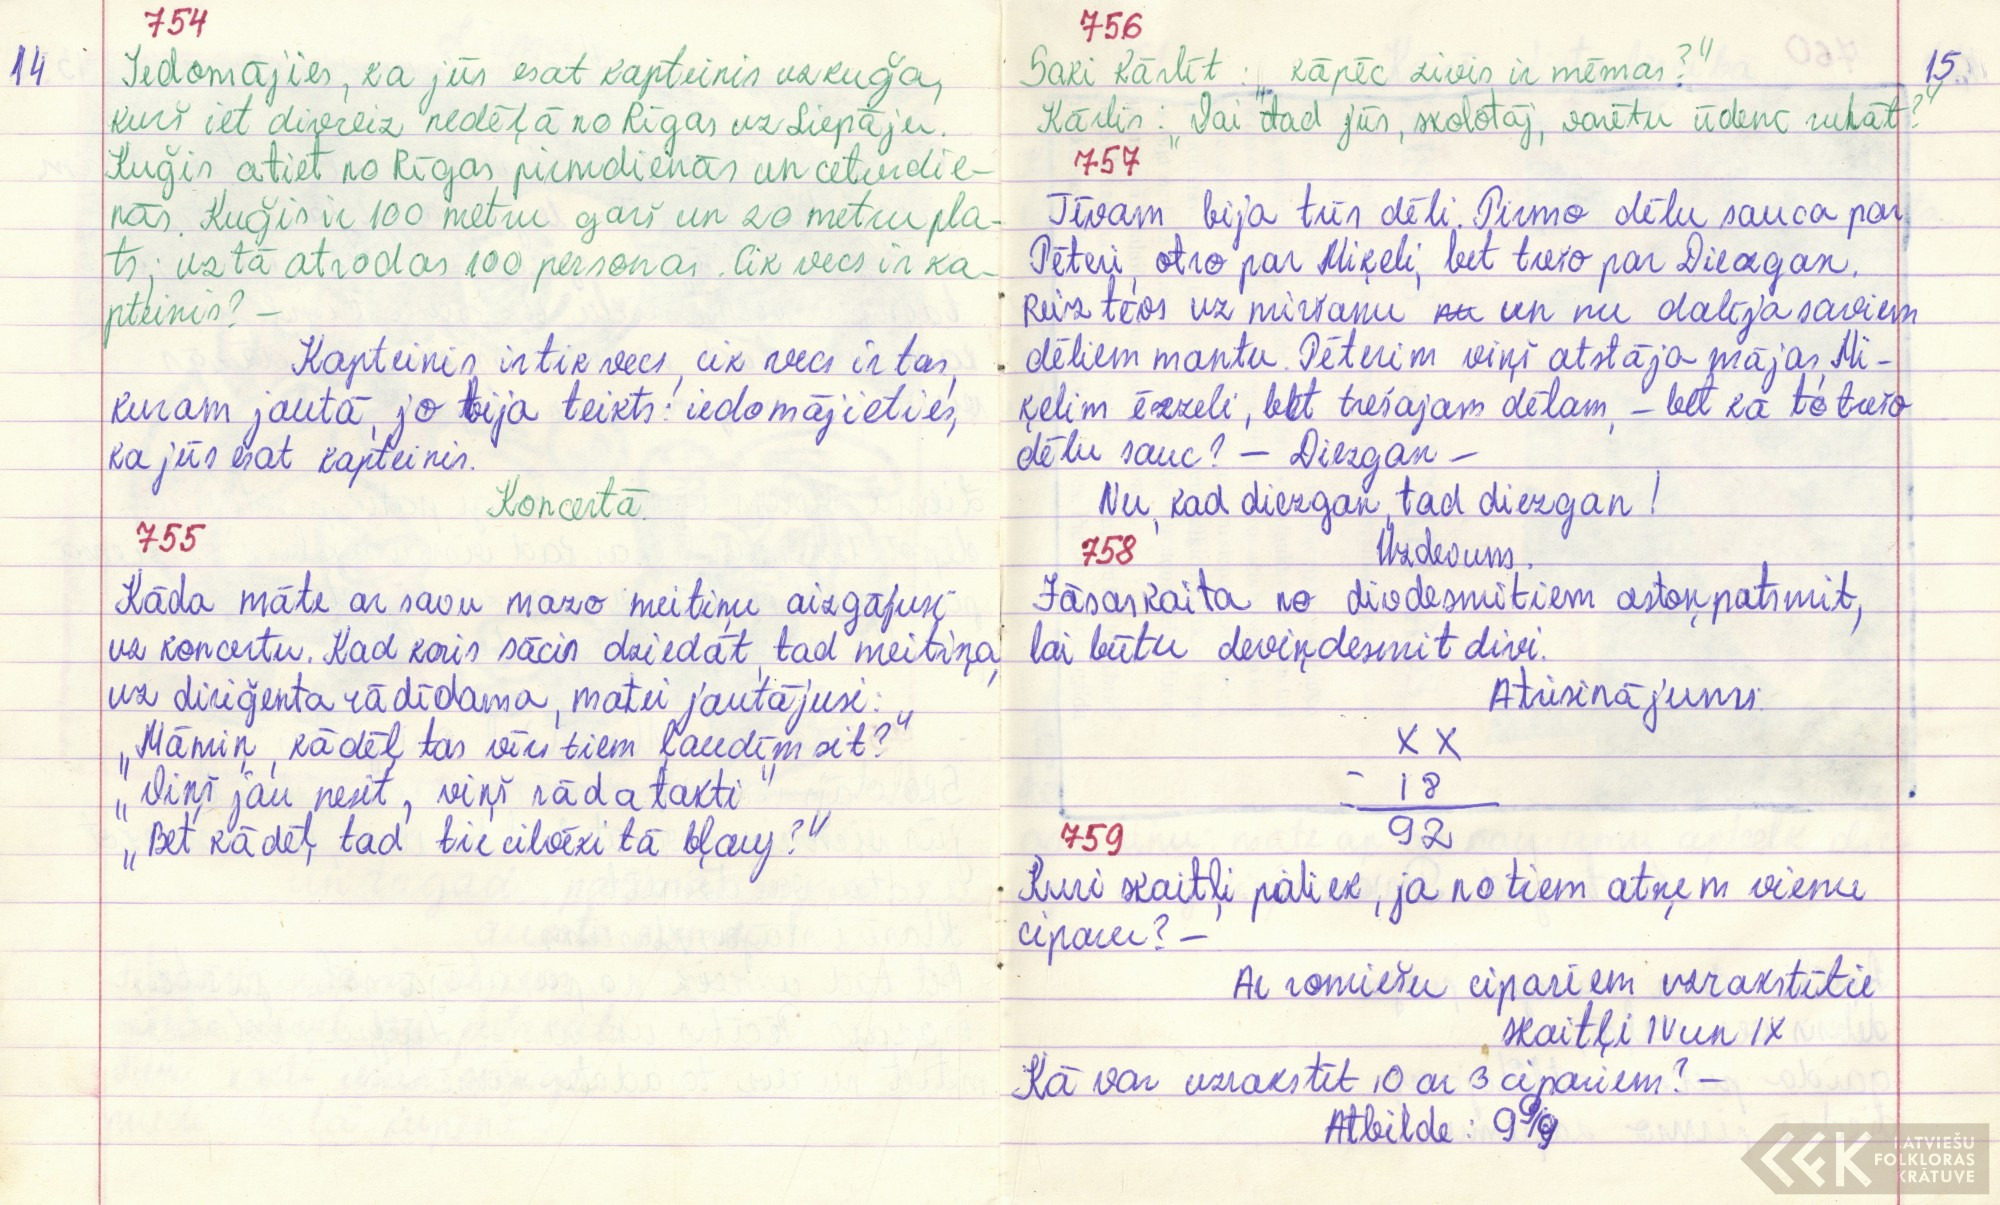 754
14
Iedomājies, ka jūs esat kapteinis uz kuģa,
kurš iet divreiz nedēļā no Rīgas uz Liepāju.
Kuģis atiet no Rīgas pirmdienās un ceturdie-
nās. Kuģis ir 100 metru garš un 20 metru pla-
ts; uz tā atrodas 100 personas. Cik vecs ir ka-
pteinis? —
Kapteinis ir tik vecs, cik vecs ir tas,
kuram jautā, jo bija teikts: iedomājieties,
ka jūs esat kapteinis.
Koncertā.
755
Kāda māte ar savu mazo meitiņu aizgājusi
uz koncertu. Kad koris sācis dziedāt, tad meitiņa,
uz diriģenta rādīdama, matei jautājusi:
„Māmiņ, kādēļ tas vīrs tiem ļaudīm sit?"
„Viņš jau nesit, viņš rāda takti"
„Bet kādēļ tad tie cilvēki tā bļauj?"
756
15.
Saki Kārlīt: „kāpēc zivis ir mēmas?"
Kārlis: „Vai tad jūs, skolotāj, varētu ūdenī runāt?"
757
Tēvam bija trīs dēli. Pirmo dēlu sauca par
Pēteri, otro par Miķeli, bet trešo par Diezgan.
Reiz tēvs uz miršanu un nu dalīja saviem
dēliem mantu. Pēterim viņš atstāja mājas, Mi-
ķelim ērzeli, bet trešajam dēlam, — bet kā to trešo
dēlu sauc? — Diezgan —
Nu, kad diezgan, tad diezgan!
758
Uzdevums.
Jāsaskaita no divdesmitiem astoņpatsmit,
lai būtu deviņdesmit divi.
Atrisinājums:
X X
- 18
92
759
Kuri skaitļi paliek, ja no tiem atņem vienu
ciparu? —
Ar romiešu cipariem uzrakstītie
skaitļi IV un IX
Kā var uzrakstīt 10 ar 3 cipariem? —
Atbilde: 9 9/9
LATVIEŠU
FOLKLORAS
KRĀTUVE